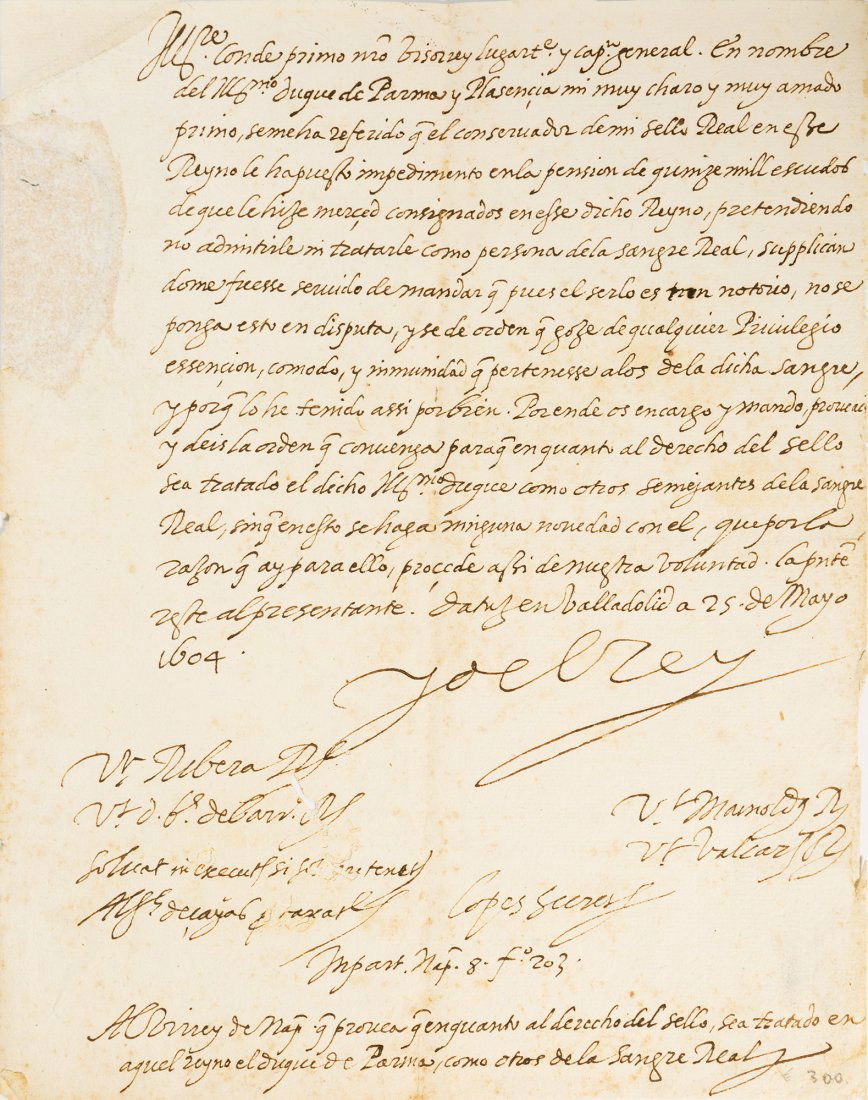 Illre. Conde primo nro Visorrey lugarte. y capn. general. En nombre
del Illmo. Duque de Parma y Plasençia mi muy charo y muy amado
primo, se me ha referido q el conservador de mi sello Real en esse
Reyno le ha puesto impedimento en la pension de quinze mill escudos
de que le hize merçed consignados en esse dicho Reyno, pretendiendo
no admitirle ni tratarle como persona de la sangre Real, supplican
dome fuesse seruido de mandar q pues el serlo es tan notorio, no se
ponga esto en disputa, y se de orden q goze de qualquier Priuilegio
essençion, comodo, y inmunidad q pertenesse a los de la dicha sangre,
y porq lo he tenido assi por bien. Por ende os encargo y mando, proueais
y deis la orden q conuenga para q en quanto al derecho del sello
sea tratado el dicho Illmo. Duque como otros semejantes de la sangre
Real, sin q en esto se haga ninguna novedad con el, que por la
razon q ay para ello, proçede assi de nuestra voluntad. La pnte
reste al presentante. Datus en Valladolid a 25. de Mayo
1604.
Yo el Rey
Vt. Ribera Rs
Vt. d.
Vt. Mainoldus Rs
Vt. Valcarçel Rs
Soluat in
Lopes Secrets
In part. Nap. 8. fo. 203.
Al Virrey de Nap. q prouea q en quanto al derecho del sello, sea tratado en
aquel reyno el duque de Parma, como otros de la Sangre Real
€ 300